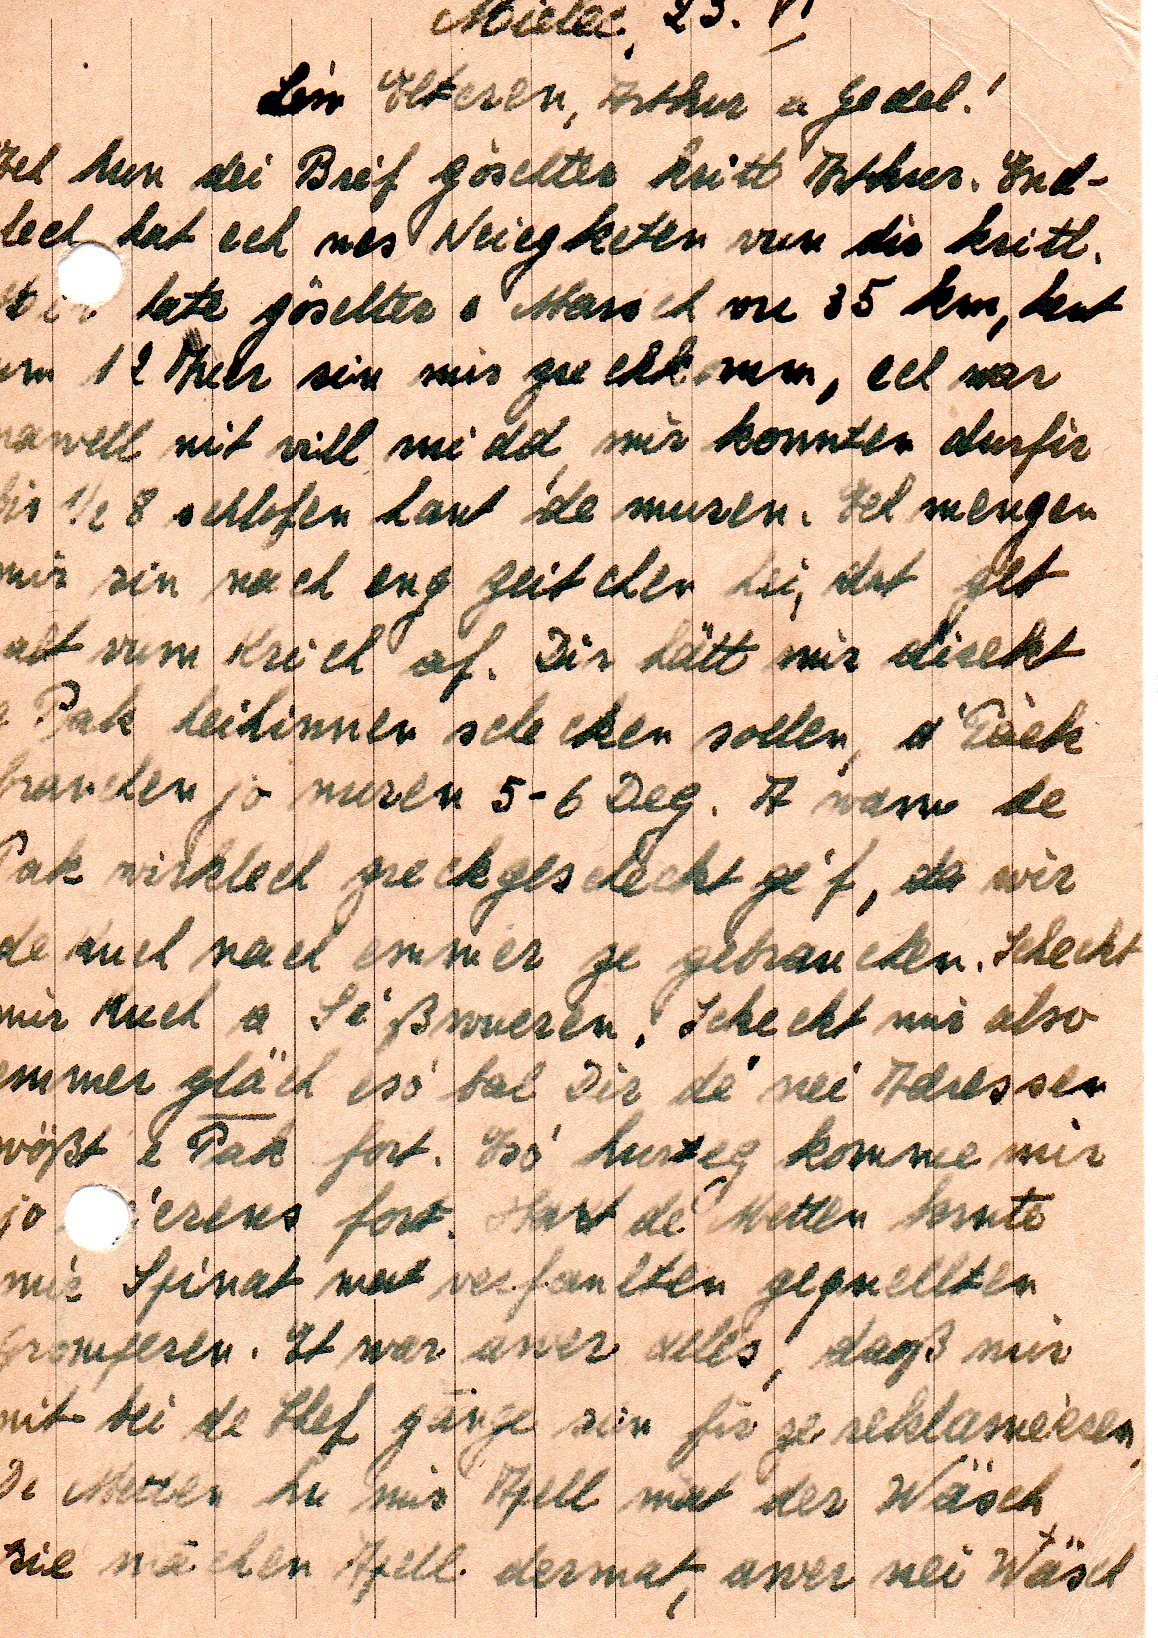 Mielec, 23. VI
Léiw Elteren, Arthur a Gedel!
Ech hun dei Brif göschter kritt Arthur. End-
lech hat ech nes Neiegketen vun dir kritt.
Mir hate göschter e Marsch vu 35 km, hent
um 12 Auer sin mir zreckkomm, ech war
nawell nit vill midd, mir konnten dufir
bis 1/2 8 schlofen haut de muren. Ech mengen
mir sin nach eng zeitchen hei, dat get
alt vum Krich of. Dir hätt mir direkt
e Pak heihinner schecken sollen, d'Päck
brauchen jo nuren 5-6 Deg. A wann de
Pak wirklech zreckgescheckt gef, da wir
de Kuch nach emmer ze gebrauchen. Scheckt
mir Kuch a Séßwueren. Scheckt mir also
emmer gläch esó bal Dir dé nei Adressen
wößt e Pak fort. Esó hurteg komme mir
jo fort. Haut dé Metten hate
mir Spinat mat verfaulten gequellten
Gromperen. Et war awer alles, daaß mir
nit bei de Chef gänge sin fir ze reklaméeren,
De Metten hu mir Apell mat der Wäsch
sie mächen Apell dermat, awer nei Wäsch